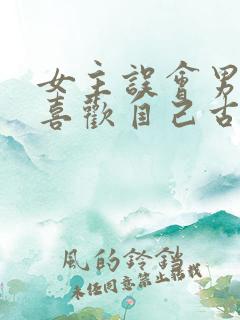 女主誤會男
喜歡自己古
風的鈴鐺
未經同意禁止轉載